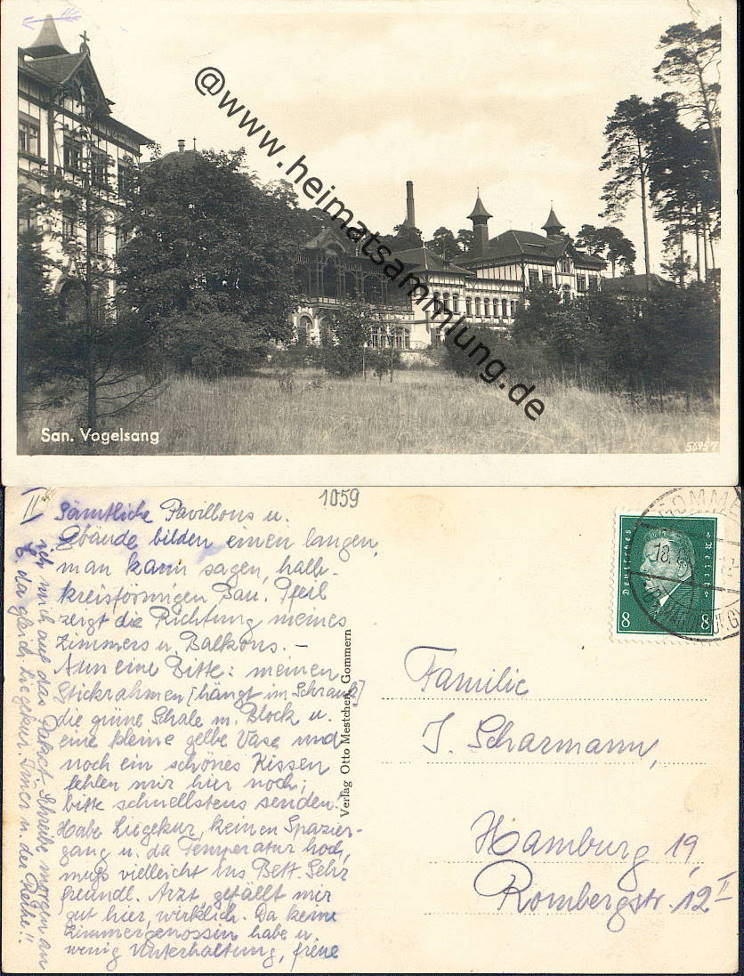 @www.heimatsammlung.de
San. Vogelsang
56957
1059
II
Sämtliche Pavillons u.
Gebäude bilden einen langen,
man kann sagen, halb-
kreisförmigen Bau. Pfeil
zeigt die Richtung meines
Zimmers u. Balkons. –
Nun eine Bitte: meinen
Stickrahmen [hängt im Schrank]
die grüne Schale m. Block u.
eine kleine gelbe Vase und
noch ein schönes Kissen
fehlen mir hier noch,
bitte schnellstens senden.
Habe Liegekur, keinen Spazier-
gang u. da Temperatur hoch,
muß vielleicht ins Bett. Sehr
freundl. Arzt, gefällt mir
gut hier, wirklich. Da keine
Zimmergenossin habe u.
wenig Unterhaltung, freue
ich mich auf das Paket. Schreibe morgen an
da gleich Liegekur. Immer n. der Reihe!!
Verlag Otto Mestchen, Gommern
Deutsches Reich
8 8
GOMME
18.
Familie
J. Scharmann,
Hamburg 19,
Rombergstr. 12 II